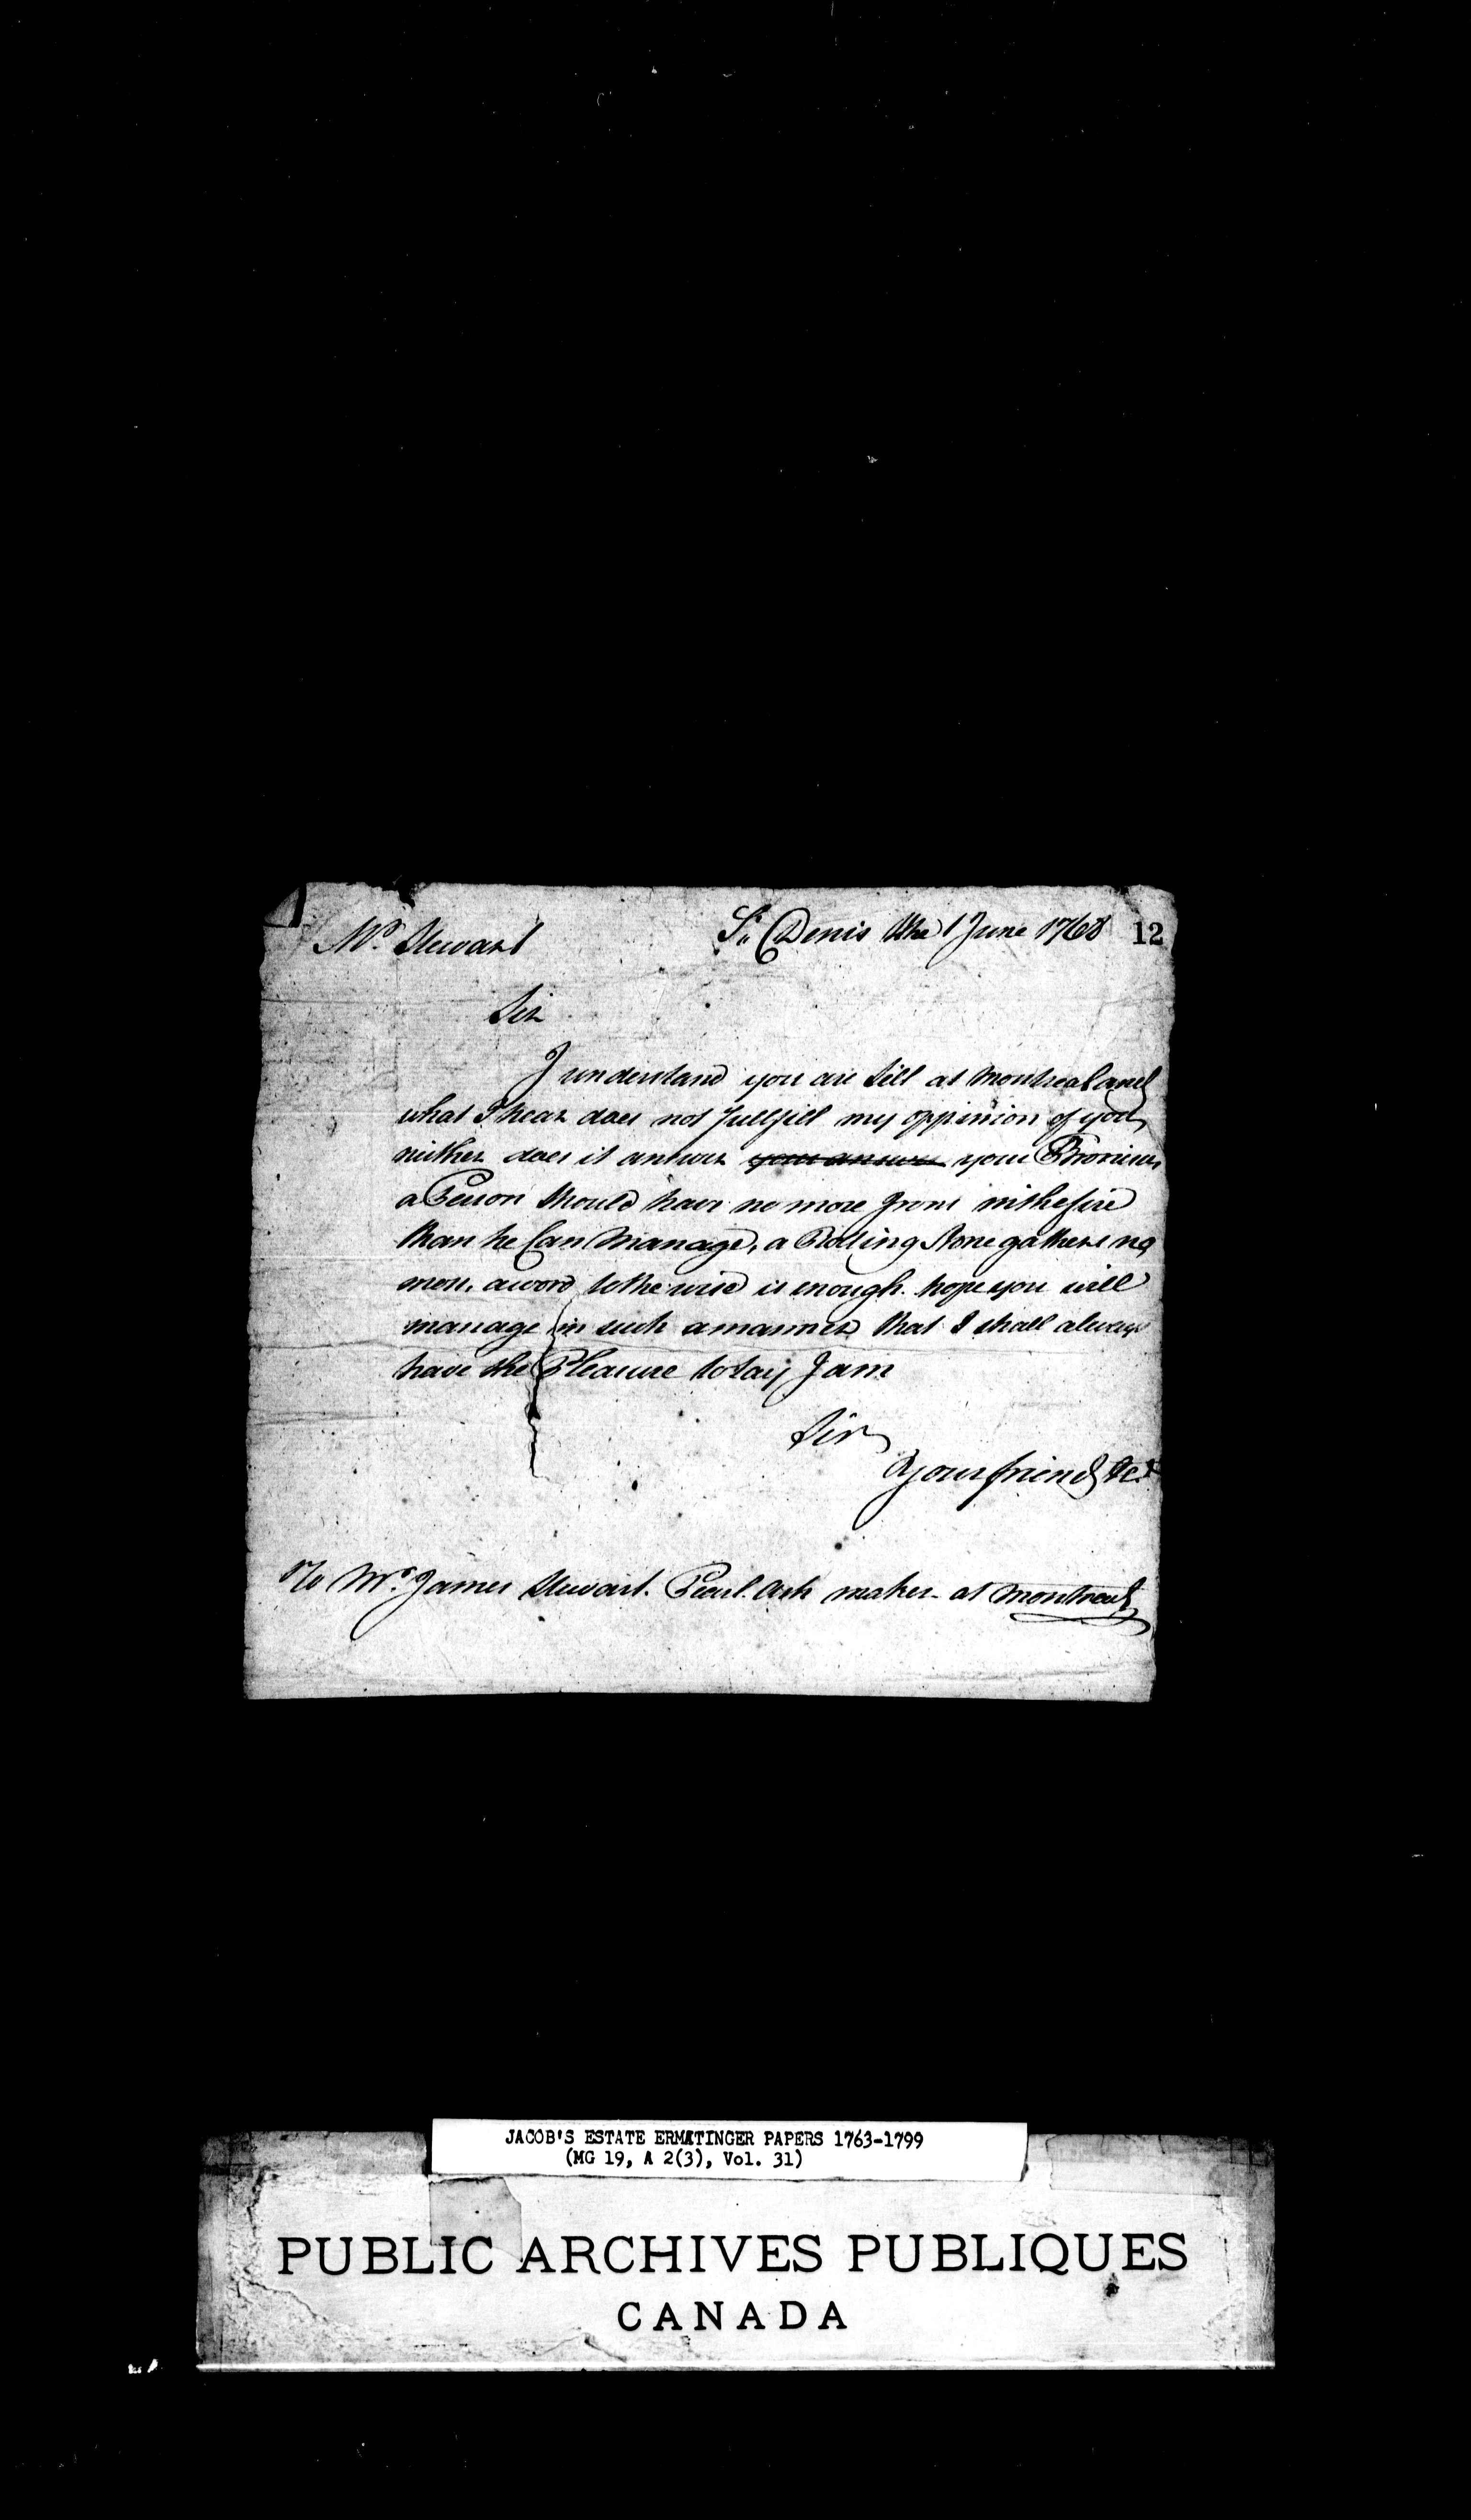 Mr. Stewart
St. Denis the 1 June 1768 12
Sir
I understand you are still at Montreal and
what I hear does not fullfill my oppinion of you,
neither does it answer your answer your Promises,
a Person should have no more Irons in the fire
than he Can Manage, a Roling Stone gathers no
moss, a word to the wise is enough. hope you will
manage in such a manner that I shall always
have the Pleasure to say I am
Sir
Your friend &c.
To Mr. James Stewart. Pearl. Ash maker at Montreal
JACOB'S ESTATE ERMATINGER PAPERS 1763-1799
(MG 19, A 2(3), Vol. 31)
PUBLIC ARCHIVES PUBLIQUES
CANADA